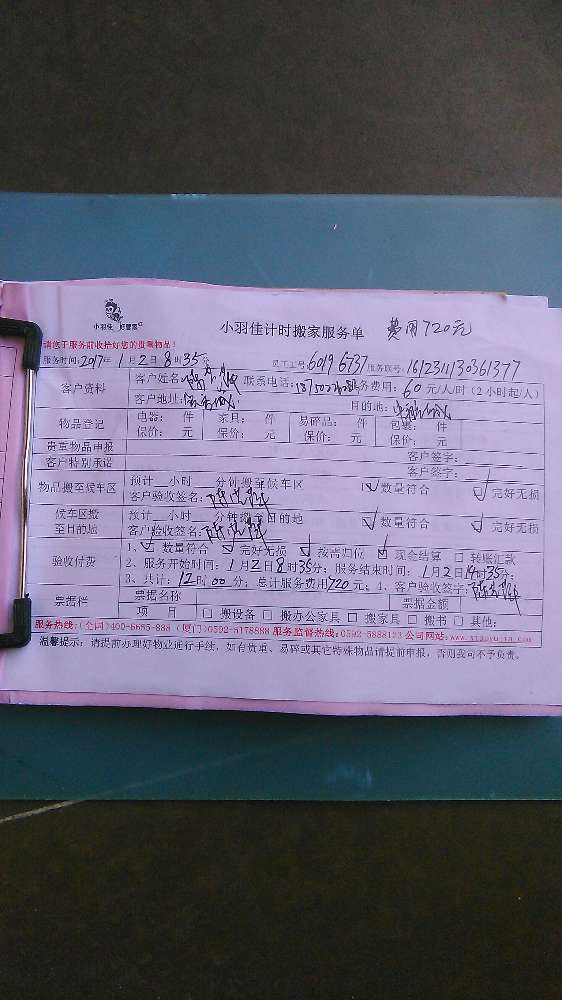 小羽佳 好管家
小羽佳计时搬家服务单 费用720元
请您于服务前收拾好您的贵重物品!
服务时间:2017年1月2日8时35分 员工工号:6019 6737 服务联号:161231130361377
客户资料 客户姓名: 联系电话: 服务费用:60元/人/时(2小时起/人)
客户地址: 目的地:
物品登记 电器: 件 家具: 件 易碎品: 件 包裹: 件
保价: 元 保价: 元 保价: 元 保价: 元
贵重物品申报 客户签字:
客户特别承诺 客户签字:
物品搬至候车区 预计__小时__分钟搬至候车区 ☑数量符合 ☑完好无损
客户验收签名:
候车区搬至目的地 预计__小时__分钟搬至目的地 ☑数量符合 ☑完好无损
客户验收签名:
验收付费 1、☑数量符合 ☑完好无损 ☑按需归位 ☑现金结算 □转账汇款
2、服务开始时间:1月2日8时35分;服务结束时间:1月2日14时35分;
3、共计:12时00分;总计服务费用720元;4、客户验收签字:
票据栏 票据名称 票据金额
项 目 □搬设备 □搬办公家具 □搬家具 □搬书 □其他:
服务热线:(全国)400-6655-888 (厦门)0592-5178888 服务监督热线:0592-5888123 公司网站:www.xiaoyujia.com
温馨提示:请提前办理好物业通行手续,如有贵重、易碎或其它特殊物品请提前申报,否则我司不予负责。